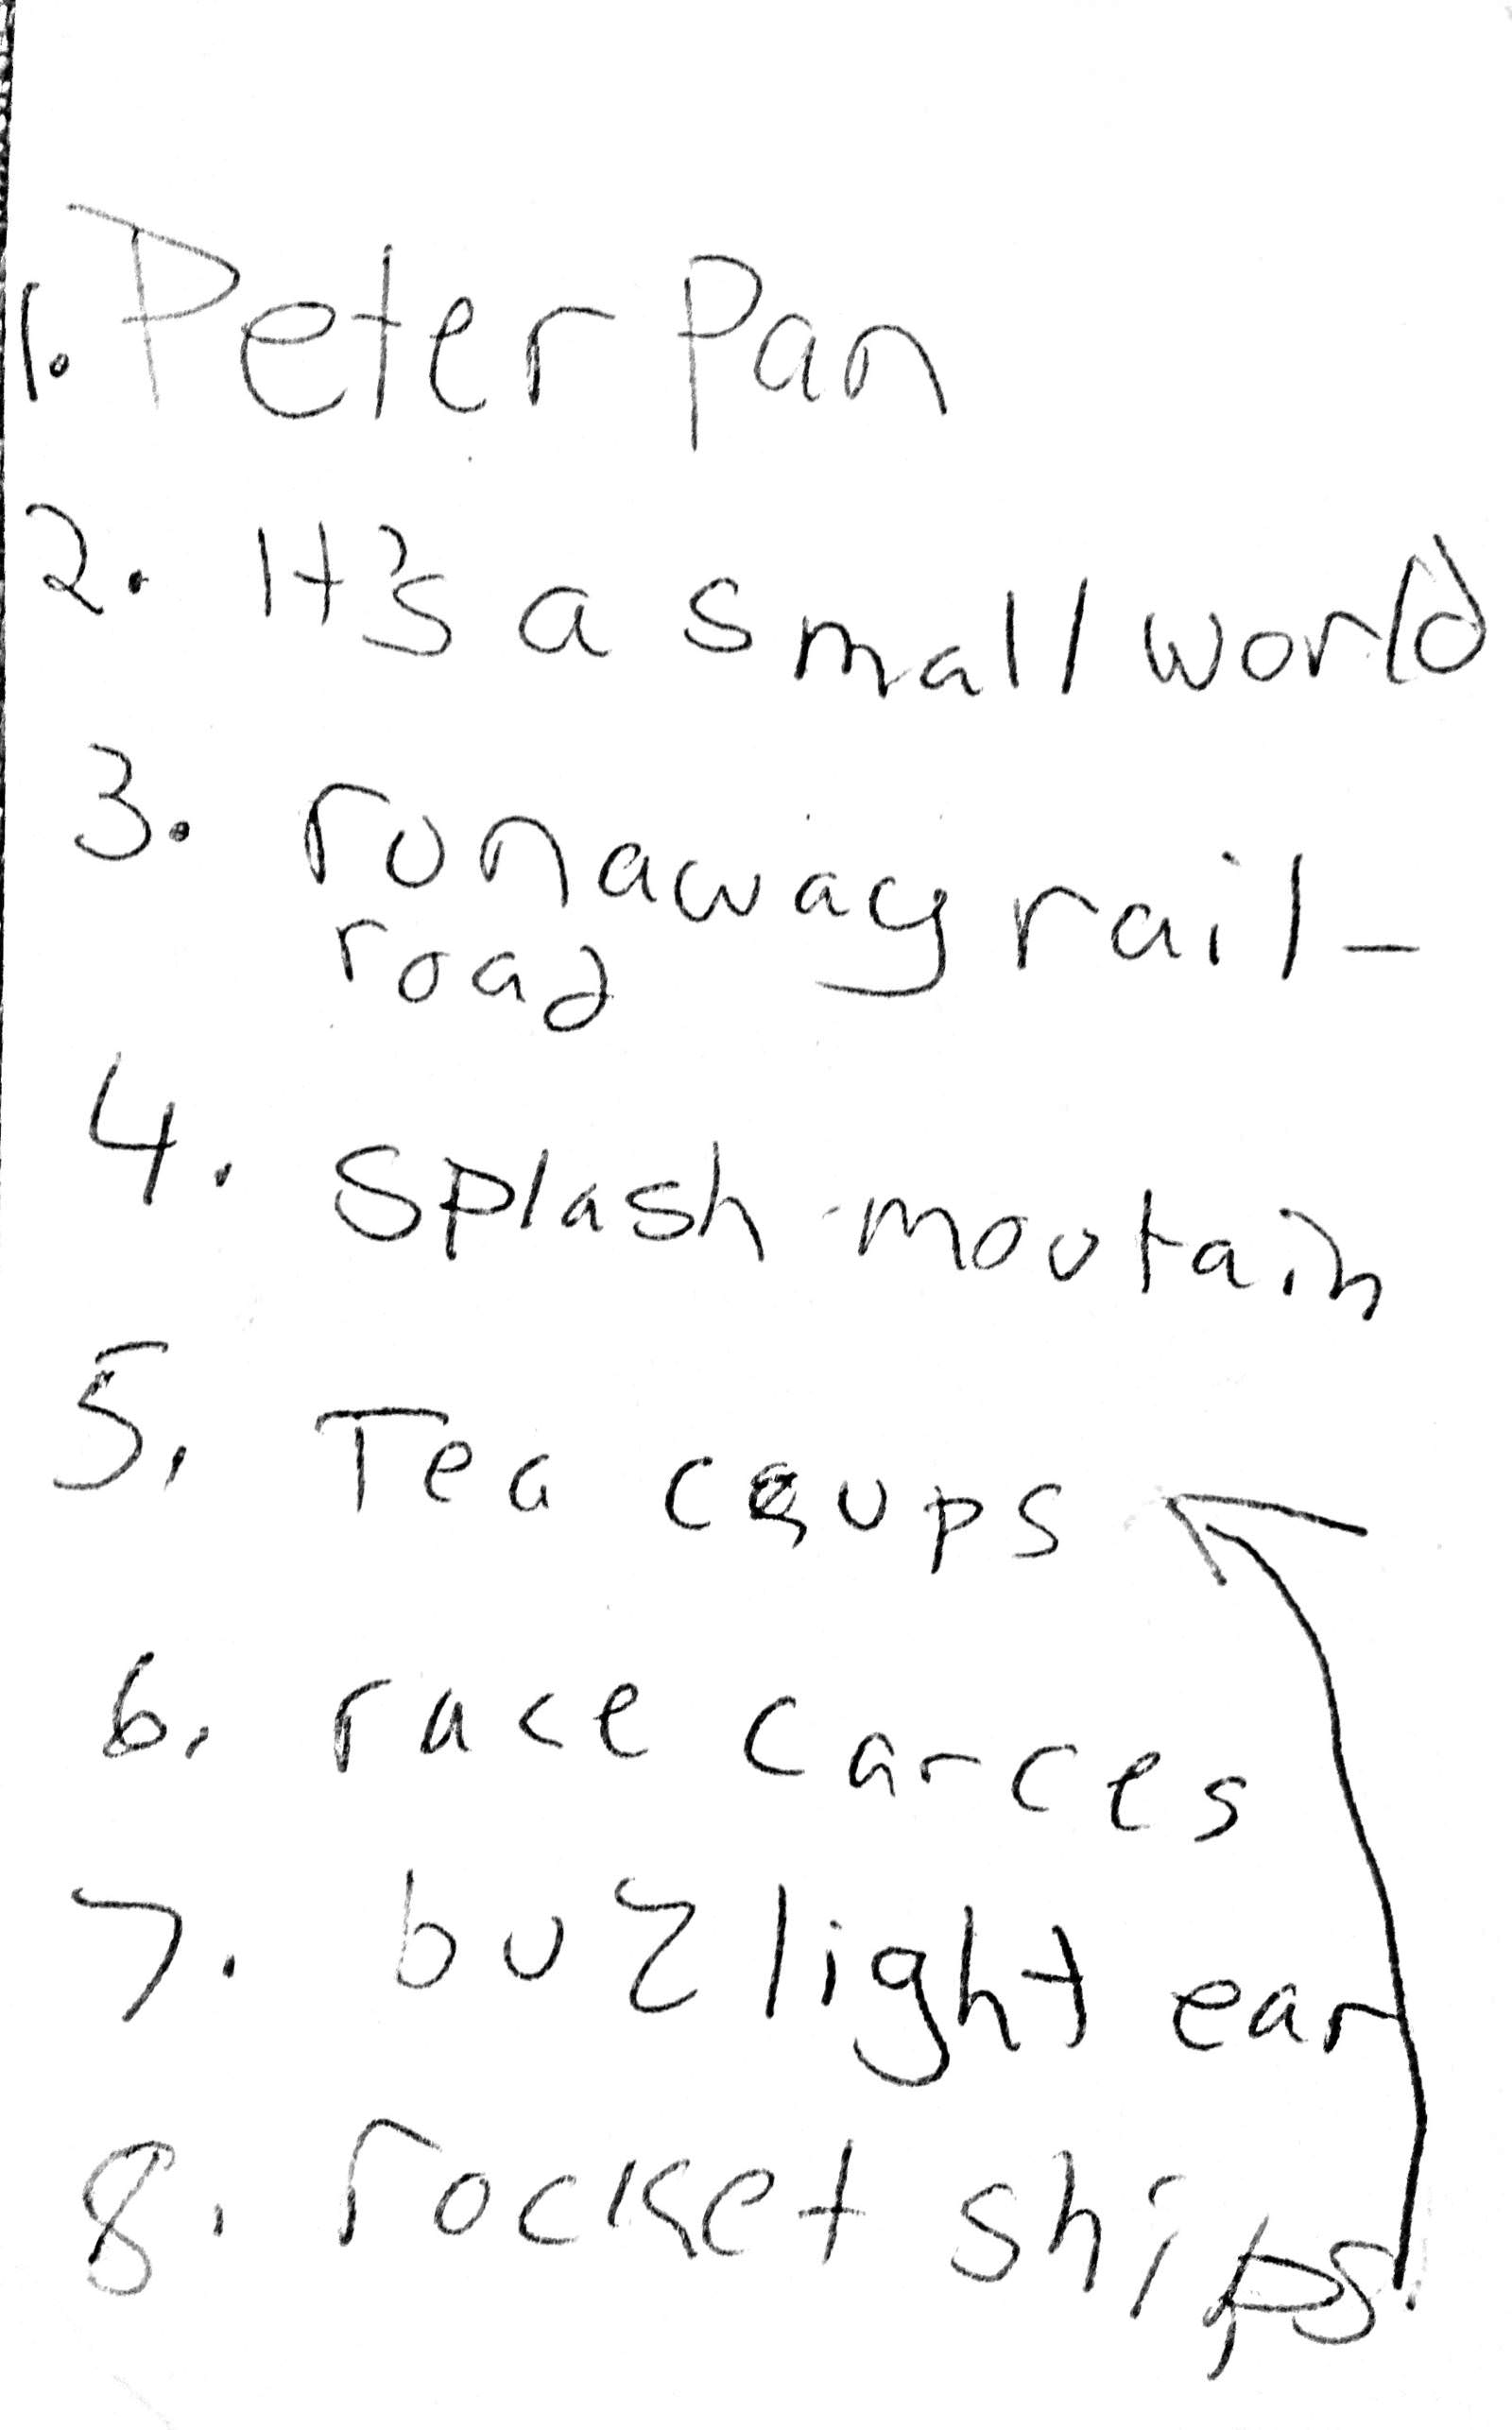 1. Peter Pan
2. It's a small world
3. runaway rail-
road
4. splash moutain
5. Tea caups
6. race carces
7. buz light ear
8. rocket ships.